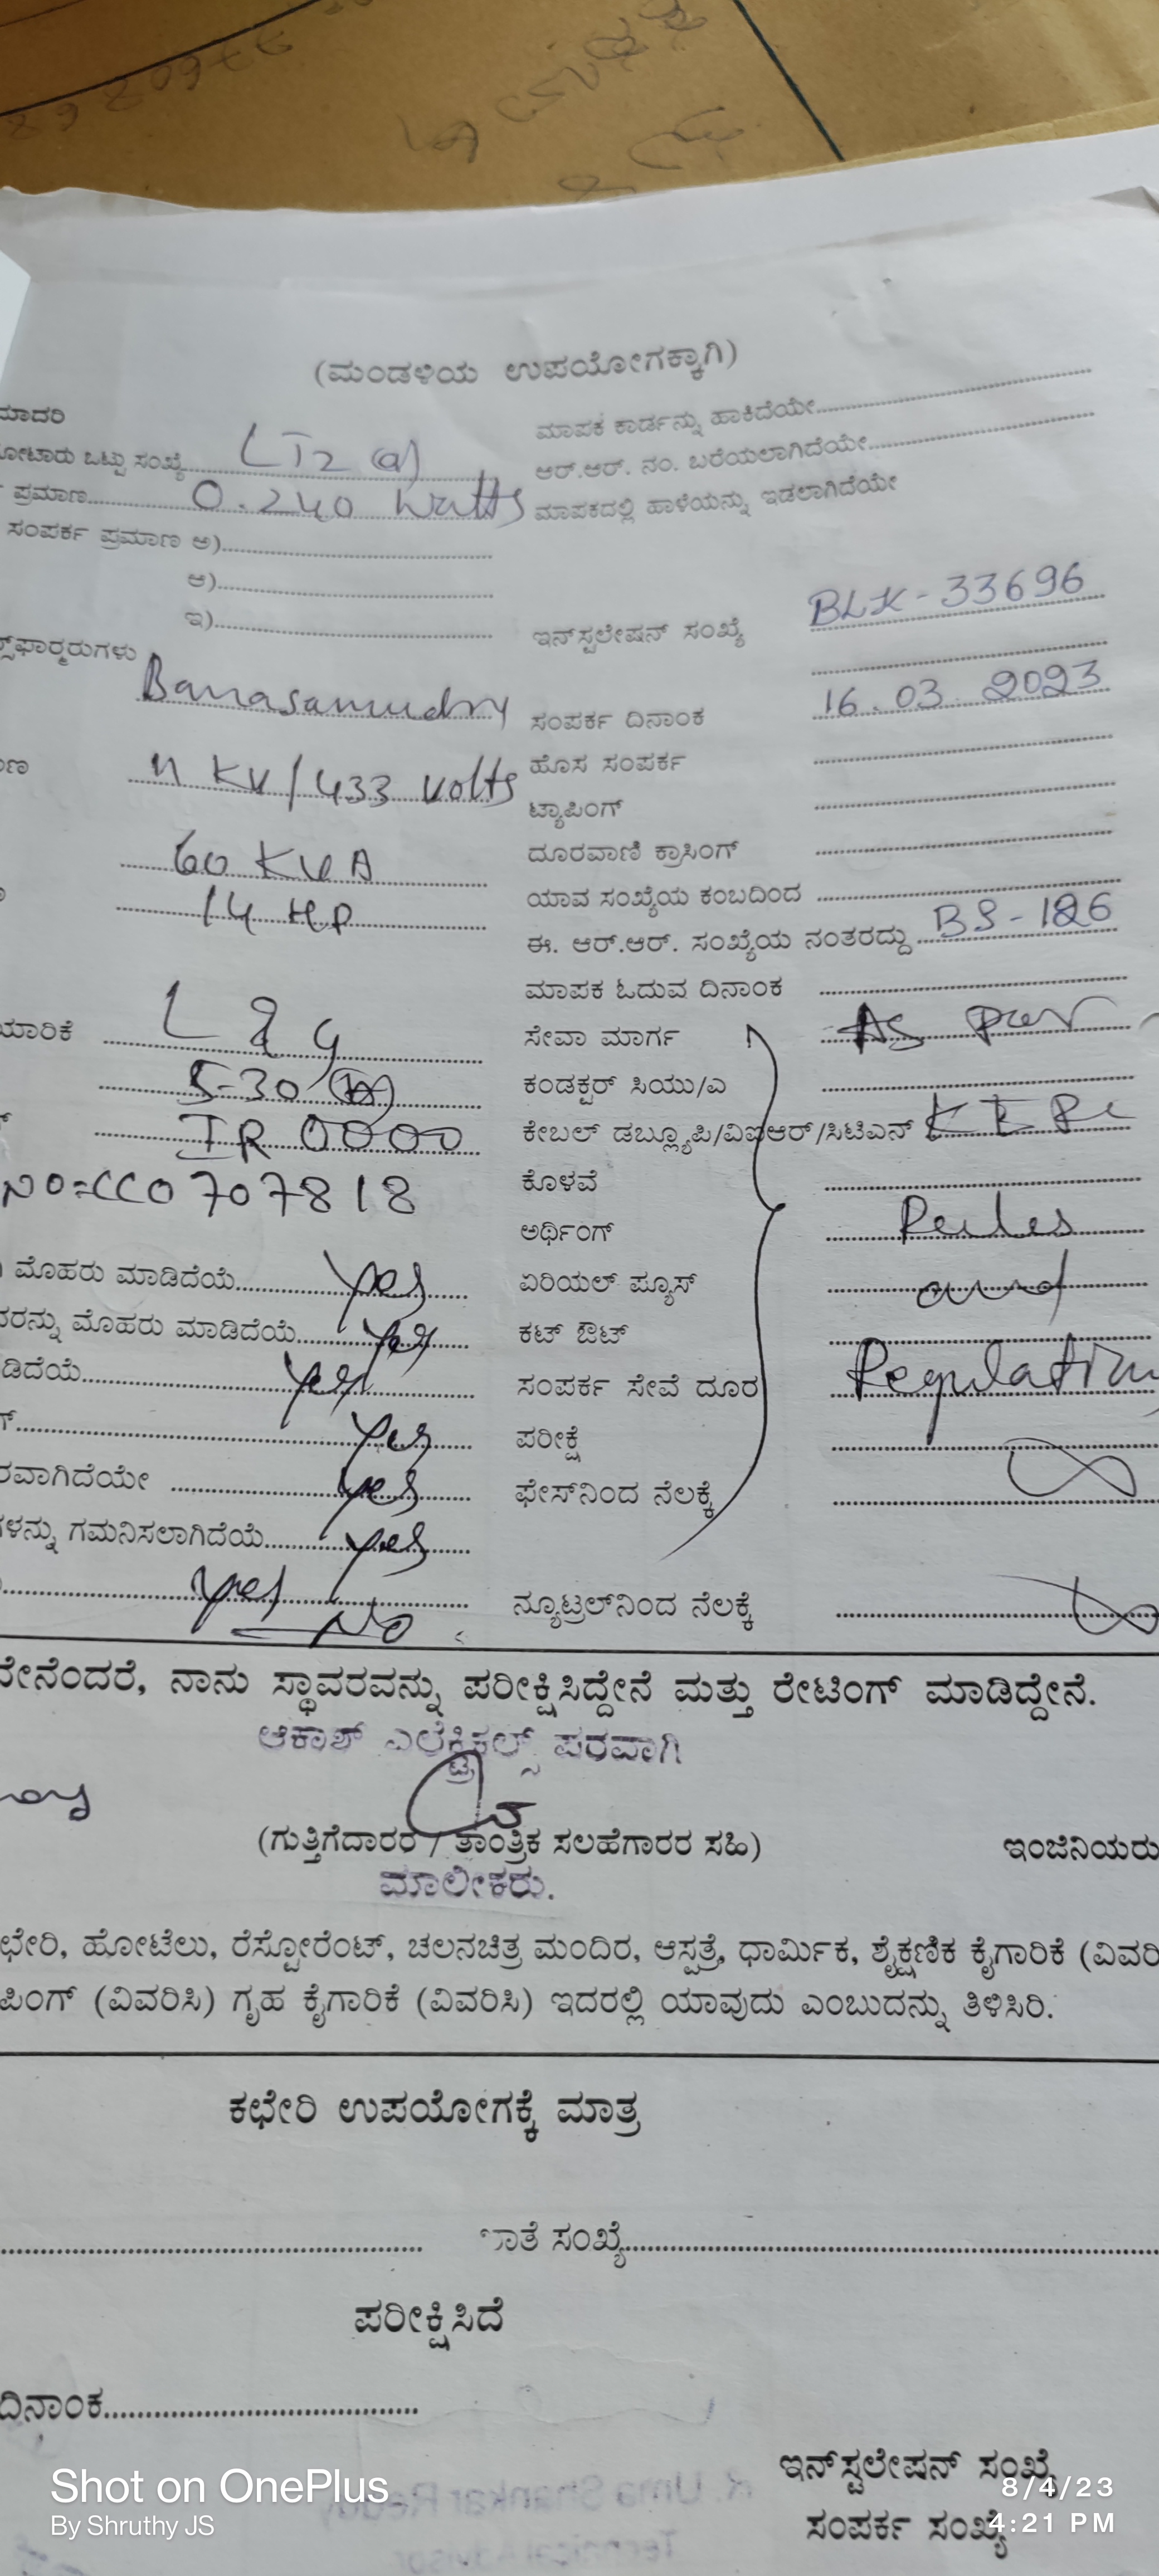 (ಮಂಡಳಿಯ ಉಪಯೋಗಕ್ಕಾಗಿ)
ಮಾದರಿ
ಮಾಪಕ ಕಾರ್ಡನ್ನು ಹಾಕಿದೆಯೇ
ಒಟ್ಟು ಸಂಖ್ಯೆ LT2 (a)
ಆರ್.ಆರ್. ನಂ. ಬರೆಯಲಾಗಿದೆಯೇ
ಪ್ರಮಾಣ 0.240 Watts
ಮಾಪಕದಲ್ಲಿ ಹಾಳೆಯನ್ನು ಇಡಲಾಗಿದೆಯೇ
ಸಂಪರ್ಕ ಪ್ರಮಾಣ ಅ)
ಆ)
ಇ)
ಇನ್‌ಸ್ಟಲೇಷನ್ ಸಂಖ್ಯೆ BLK-33696
ಸಂಪರ್ಕ ದಿನಾಂಕ 16.03.2023
11 KV/433 volts
ಹೊಸ ಸಂಪರ್ಕ
ಟ್ಯಾಪಿಂಗ್
60 KVA
ದೂರವಾಣಿ ಕ್ರಾಸಿಂಗ್
14 HP
ಯಾವ ಸಂಖ್ಯೆಯ ಕಂಬದಿಂದ
ಈ. ಆರ್.ಆರ್. ಸಂಖ್ಯೆಯ ನಂತರದ್ದು BS-186
ಮಾಪಕ ಓದುವ ದಿನಾಂಕ
L & G
ಸೇವಾ ಮಾರ್ಗ As per
5-30
ಕಂಡಕ್ಟರ್ ಸಿಯು/ಎ
IR 0000
ಕೇಬಲ್ ಡಬ್ಲ್ಯೂಪಿ/ವಿಐಆರ್/ಸಿಟಿಎನ್
NO:CC0707818
ಕೊಳವೆ
ಅರ್ಥಿಂಗ್ Rules
ಮೊಹರು ಮಾಡಿದೆಯೆ yes
ಏರಿಯಲ್ ಫ್ಯೂಸ್ and
ಮೊಹರು ಮಾಡಿದೆಯೆ yes
ಕಟ್ ಔಟ್
yes
ಸಂಪರ್ಕ ಸೇವೆ ದೂರ Regulation
yes
ಪರೀಕ್ಷೆ
yes
ಫೇಸ್‌ನಿಂದ ನೆಲಕ್ಕೆ
ಗಮನಿಸಲಾಗಿದೆಯೆ yes
yes
No
ನ್ಯೂಟ್ರಲ್‌ನಿಂದ ನೆಲಕ್ಕೆ
ನಾನು ಸ್ಥಾವರವನ್ನು ಪರೀಕ್ಷಿಸಿದ್ದೇನೆ ಮತ್ತು ರೇಟಿಂಗ್ ಮಾಡಿದ್ದೇನೆ.
ಆಕಾಶ್ ಎಲೆಕ್ಟ್ರಿಕಲ್ಸ್ ಪರವಾಗಿ
(ಗುತ್ತಿಗೆದಾರರ / ತಾಂತ್ರಿಕ ಸಲಹೆಗಾರರ ಸಹಿ) ಇಂಜಿನಿಯರು
ಮಾಲೀಕರು.
ಹೋಟೆಲು, ರೆಸ್ಟೋರೆಂಟ್, ಚಲನಚಿತ್ರ ಮಂದಿರ, ಆಸ್ಪತ್ರೆ, ಧಾರ್ಮಿಕ, ಶೈಕ್ಷಣಿಕ ಕೈಗಾರಿಕೆ
(ವಿವರಿಸಿ) ಗೃಹ ಕೈಗಾರಿಕೆ (ವಿವರಿಸಿ) ಇದರಲ್ಲಿ ಯಾವುದು ಎಂಬುದನ್ನು ತಿಳಿಸಿರಿ.
ಕಛೇರಿ ಉಪಯೋಗಕ್ಕೆ ಮಾತ್ರ
ಸಂಖ್ಯೆ
ಪರೀಕ್ಷಿಸಿದೆ
ದಿನಾಂಕ
ಇನ್‌ಸ್ಟಲೇಷನ್ ಸಂಖ್ಯೆ
ಸಂಪರ್ಕ ಸಂಖ್ಯೆ
Shot on OnePlus
By Shruthy JS
8/4/23
4:21 PM